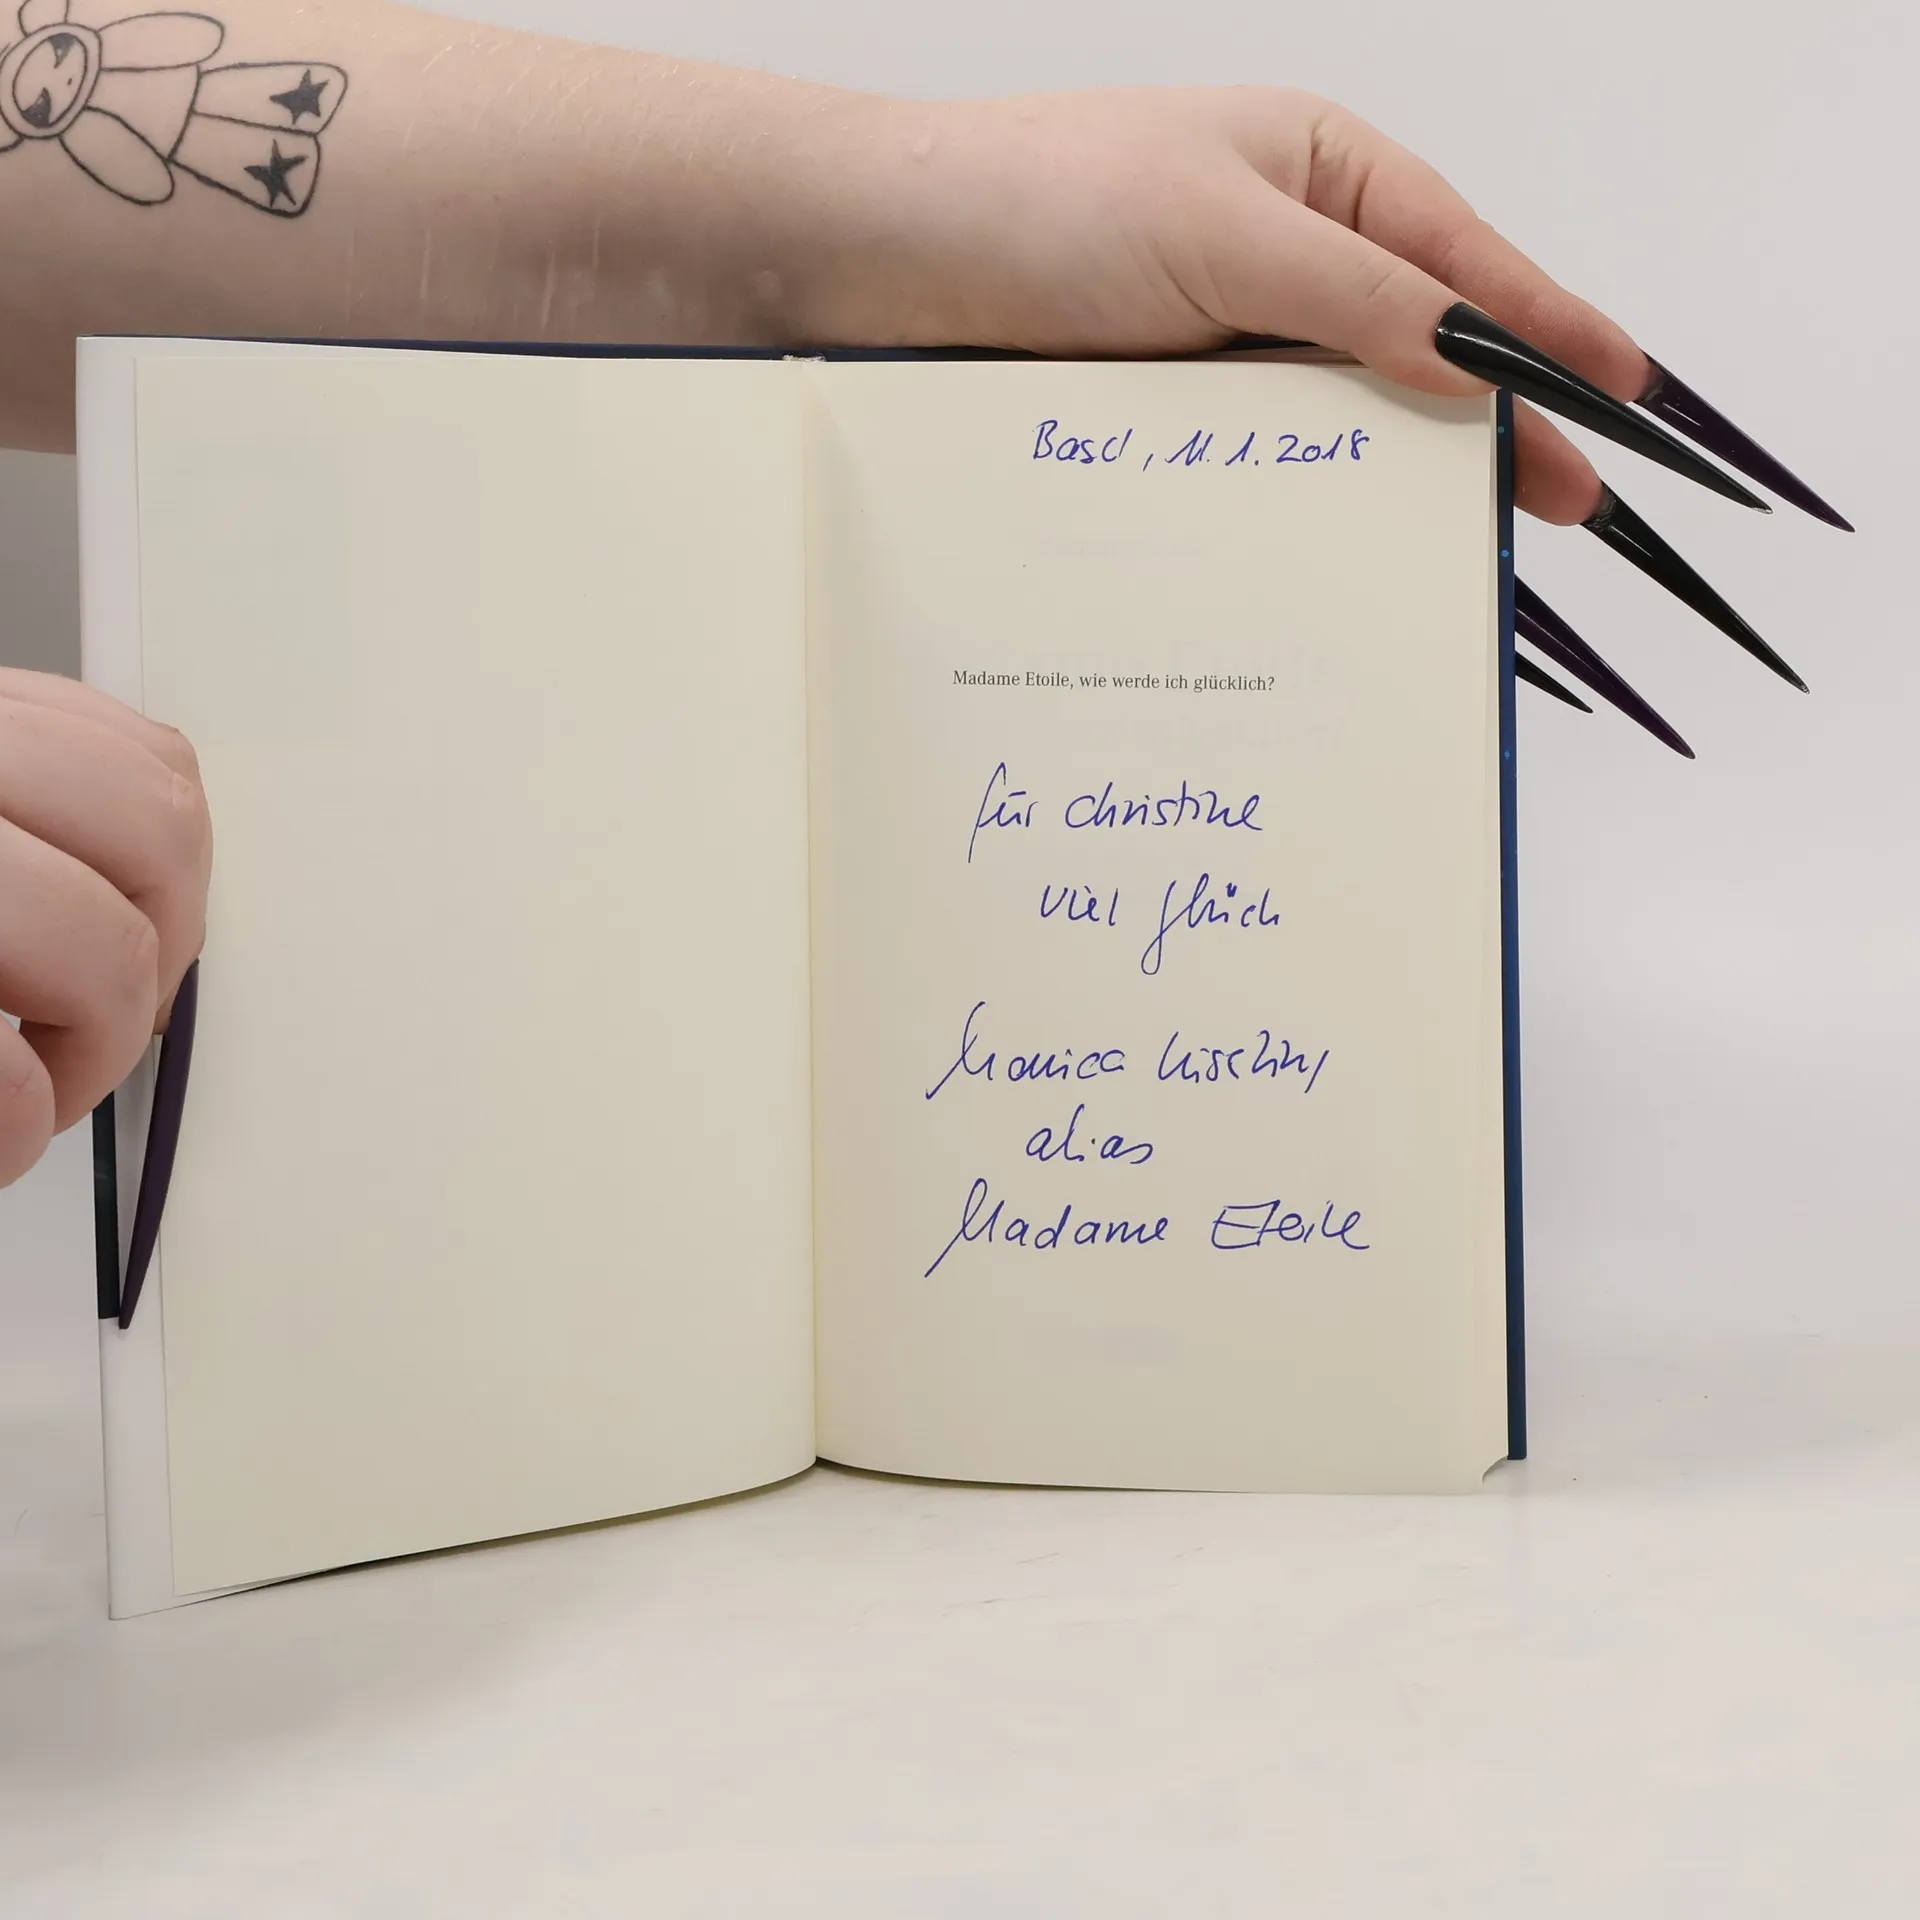 Basel, 11. 1. 2018
Madame Etoile, wie werde ich glücklich?
für Christine
viel Glück
Monica Kissling
alias
Madame Etoile